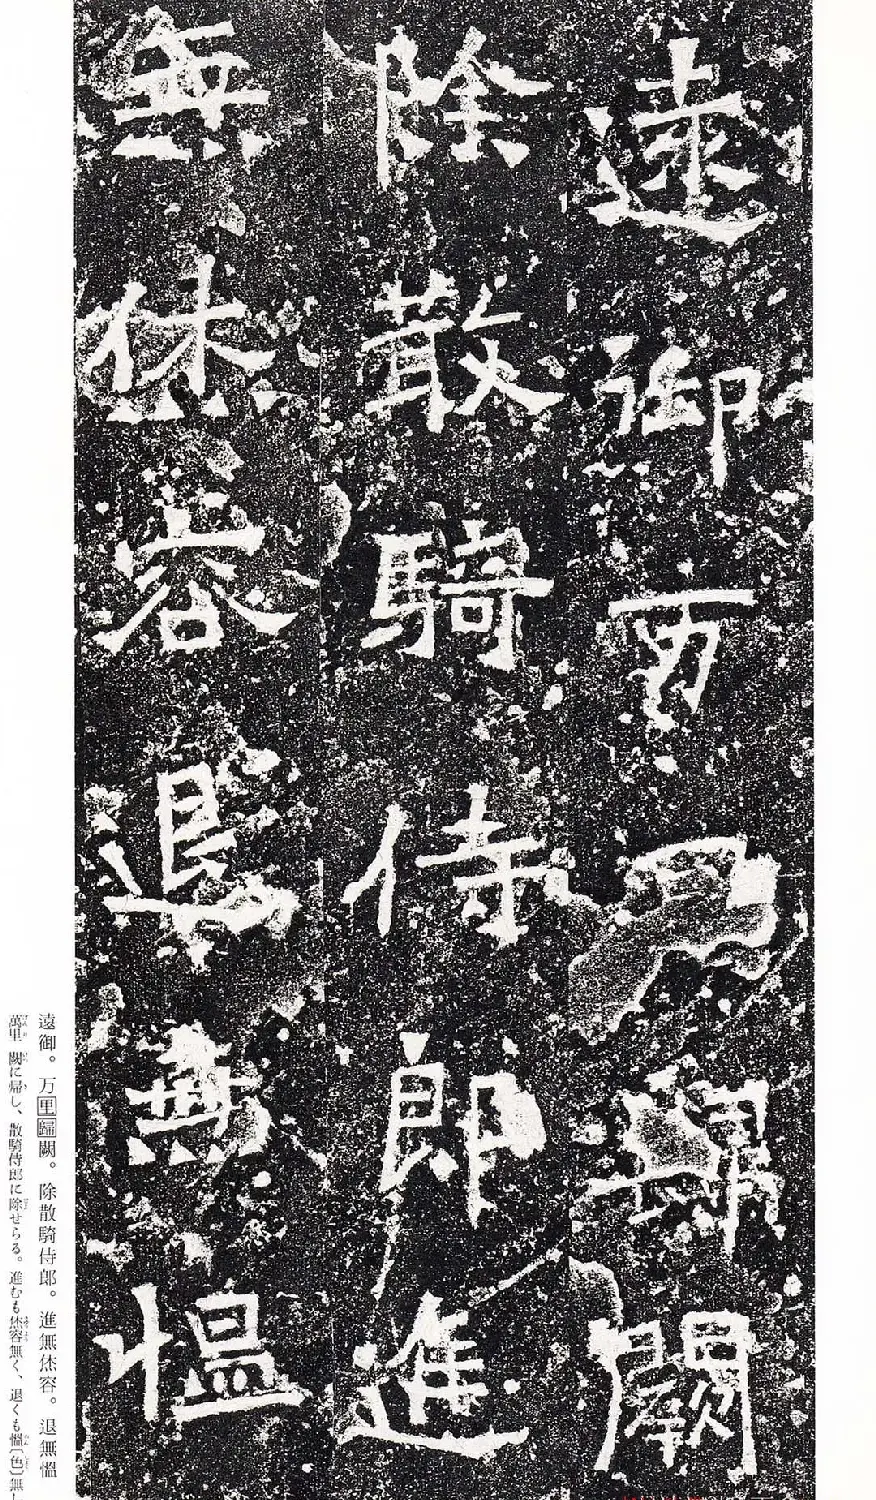 遠御万里歸闕
除散騎侍郎進
無烋容退無慍
遠御。万里歸闕。除散騎侍郎。進無烋容。退無慍
萬里闕に帰し、散騎侍郎に除せらる。進むも烋容無く、退くも慍〔色〕無し